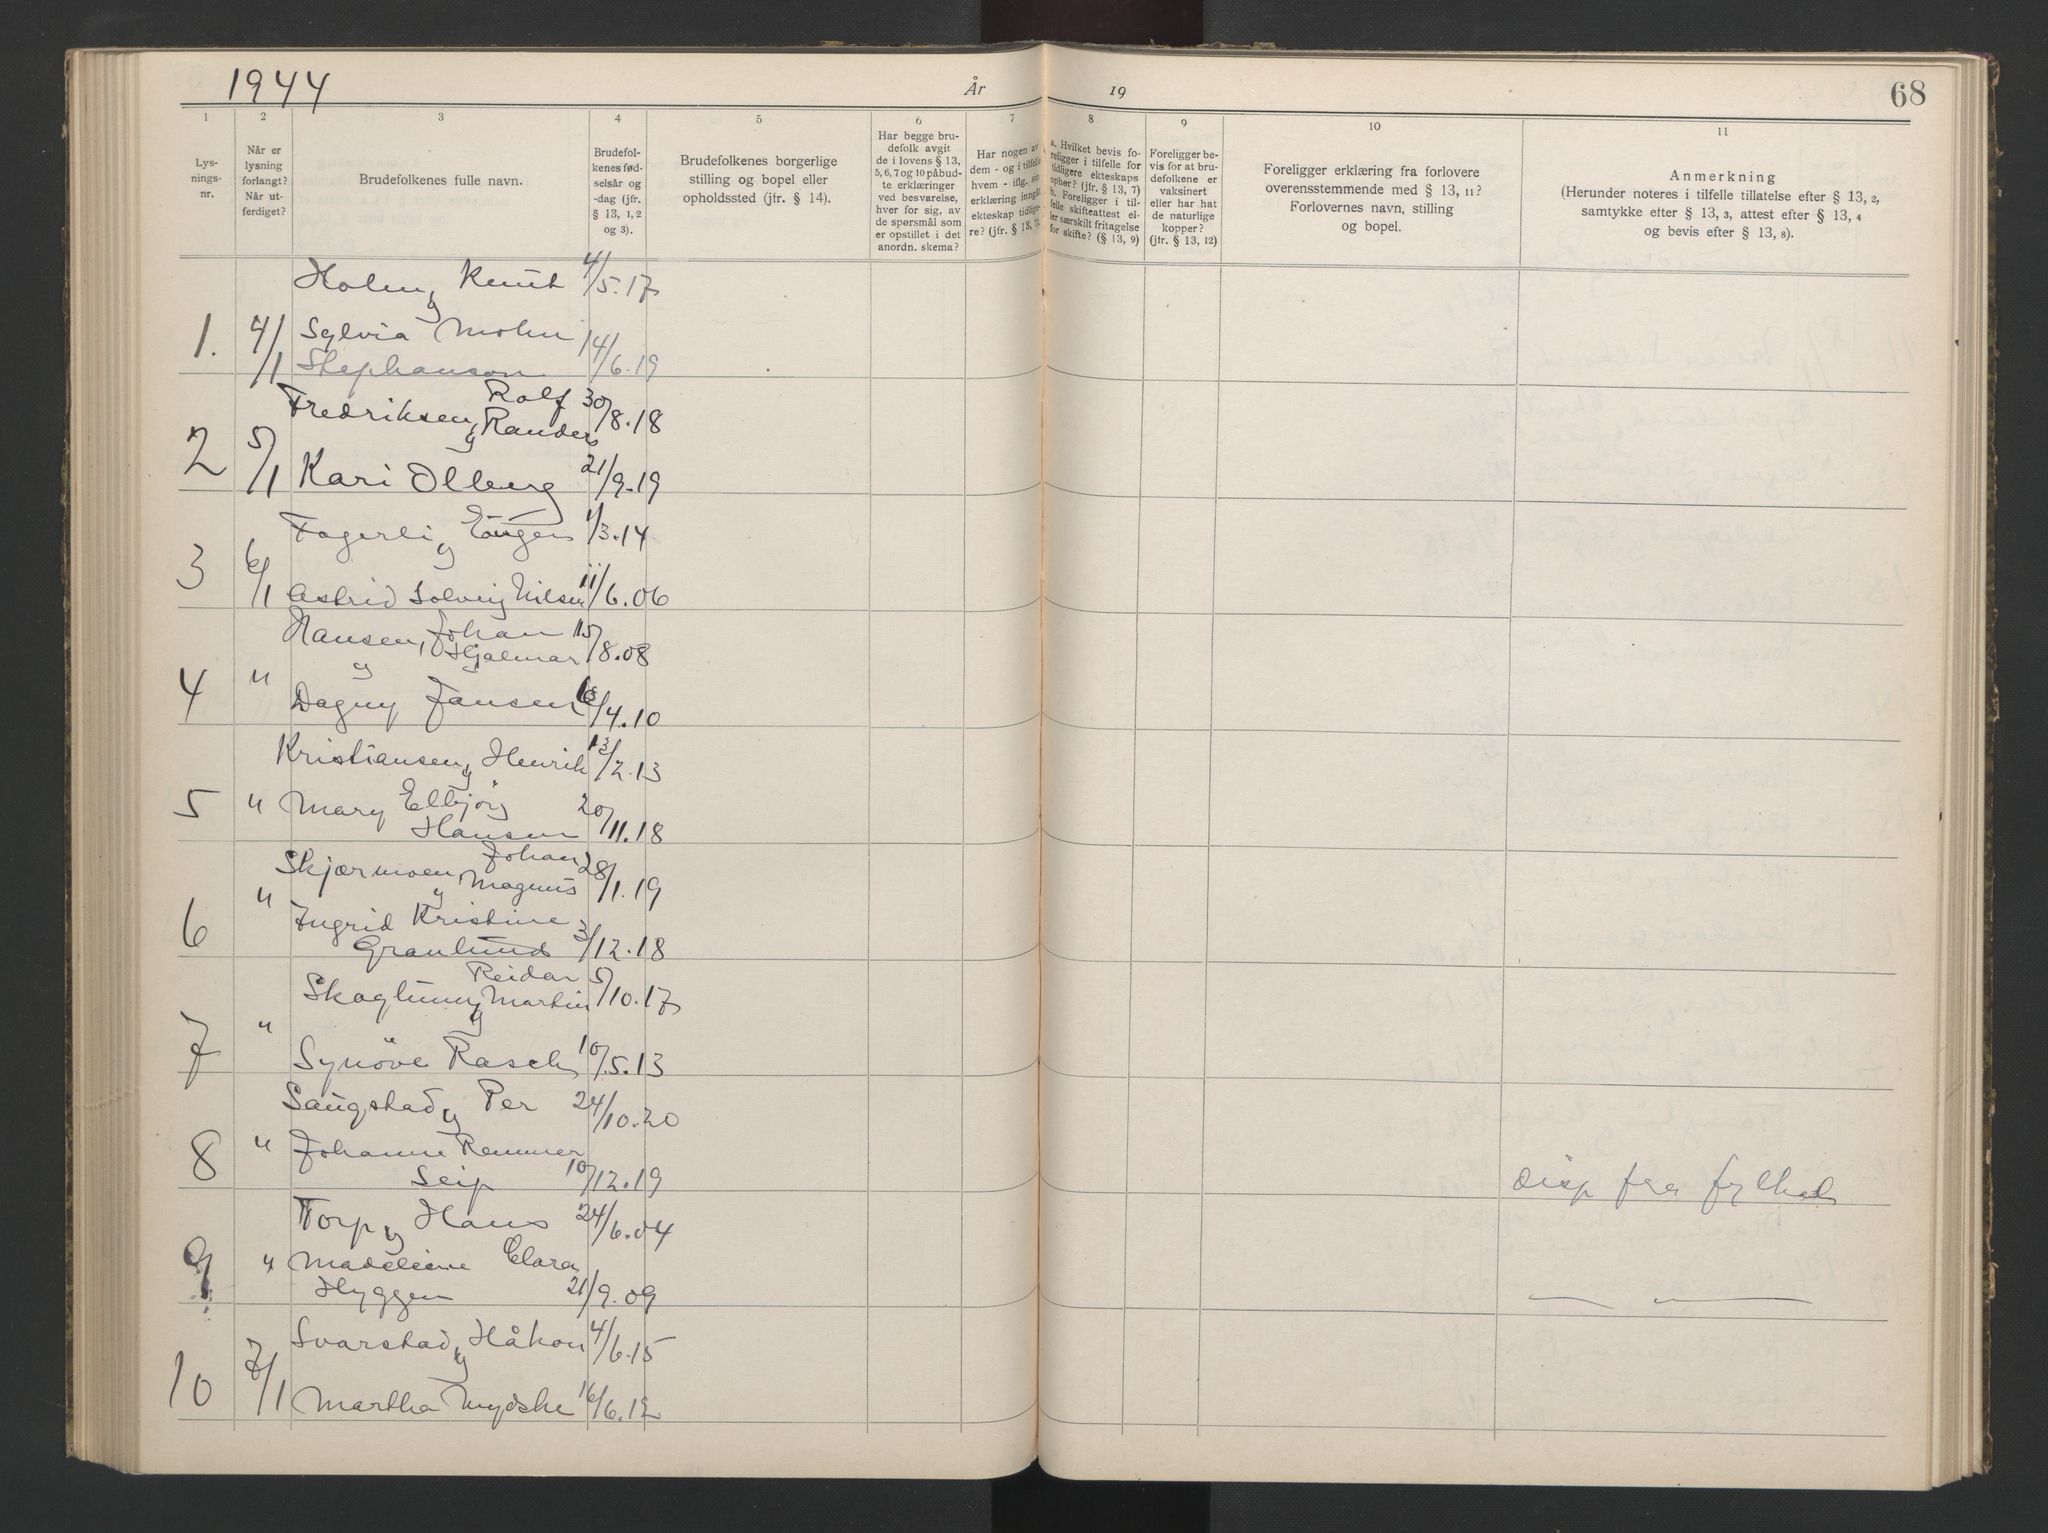 1944 År 19 68
1 2 3 4 5 6 7 8 9 10 11
Lys-
nings-
nr.
Når er
lysning
forlangt?
Når ut-
ferdiget?
Brudefolkenes fulle navn.
Brudefol-
kenes fød-
selsår og
-dag (jfr.
§ 13, 1, 2
og 3).
Brudefolkenes borgerlige
stilling og bopel eller
opholdssted (jfr. § 14).
Har begge bru-
defolk avgit
de i lovens § 13,
5, 6, 7 og 10 påbud-
te erklæringer
ved besvarelse,
hver for sig, av
de spørsmål som
er opstillet i det
anordn. skema?
Har nogen av
dem - og i tilfelle
hvem - iflg. sin
erklæring inngått
ekteskap tidlige-
re? (jfr. § 13, 7).
a. Hvilket bevis fo-
religger i tilfelle for
tidligere ekteskaps
ophør? (jfr. § 13, 7)
b. Foreligger i til-
felle skifteattest el-
ler særskilt fritagelse
for skifte? (§ 13, 9)
Foreligger be-
vis for at bru-
defolkene er
vaksinert
eller har hat
de naturlige
kopper?
(jfr. § 13, 12)
Foreligger erklæring fra forlovere
overensstemmende med § 13, 11?
Forlovernes navn, stilling
og bopel.
Anmerkning
(Herunder noteres i tilfelle tillatelse efter § 13, 2,
samtykke efter § 13, 3, attest efter § 13, 4
og bevis efter § 13, 8).
Holm, Knut 4/5.17
og
1. 4/1 Sylvia Mohn 14/6.19
Stephanson
Rolf 30/8.18
Fredriksen, Randers
og
2 5/1 Kari Olberg 21/9.19
Fagerli, Eugen 1/3.14
og
3 6/1 Astrid Solveig Nilsen 11/6.06
Hansen, Johan 15/8.08
Hjalmar
og
4 " Dagny Jansen 6/4.10
Kristiansen, Henrik 13/2.13
og
5 " Mary Elbjörg 20/11.18
Hansen
Johan 28/1.19
Skjærmoen, Magnus
og
6 " Ingrid Kristine
Granlund 3/12.18
Reidar 5/10.17
Skaglund, Martin
og
7 " Synöve Rasch 10/5.13
Saugstad, Per 24/10.20
og
8 " Johanne Remmer
Seip 10/12.19 disp fra fylked
Torp, Hans 24/6.04
og
9 " Madeleine Clara
Hyggen 21/9.09 — —
Svarstad, Håkon 4/6.15
og
10 7/1 Martha Mydske 16/6.12